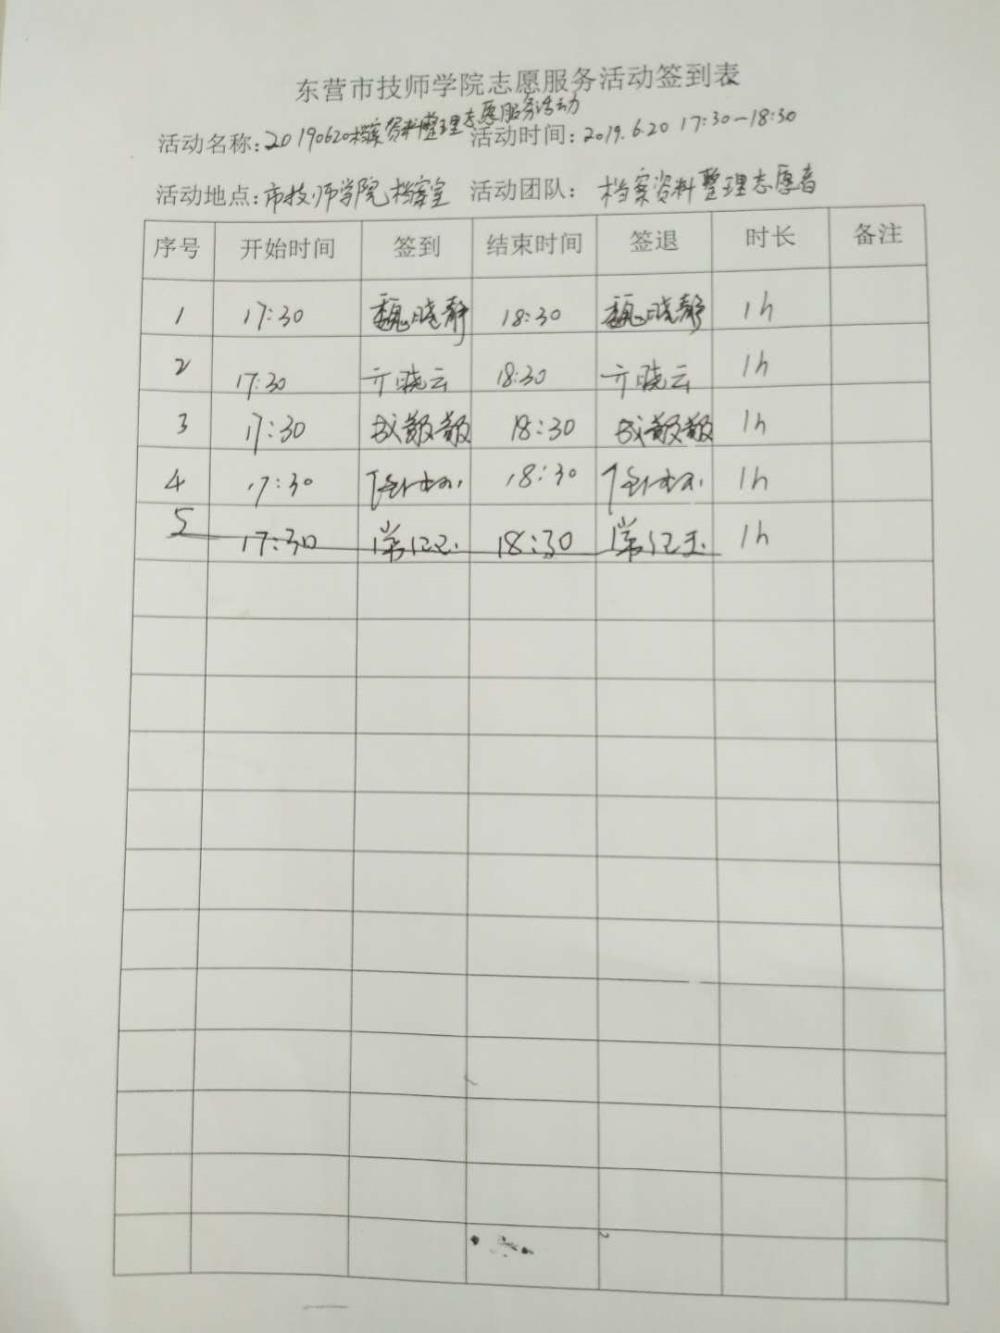 东营市技师学院志愿服务活动签到表
活动名称:20190620档案资料整理志愿服务活动 活动时间:2019.6.20 17:30-18:30
活动地点:市技师学院档案室 活动团队: 档案资料整理志愿者
序号 开始时间 签到 结束时间 签退 时长 备注
1 17:30 魏晓静 18:30 魏晓静 1h
2 17:30 亓晓云 18:30 亓晓云 1h
3 17:30 18:30 1h
4 17:30 18:30 1h
5 17:30 18:30 1h